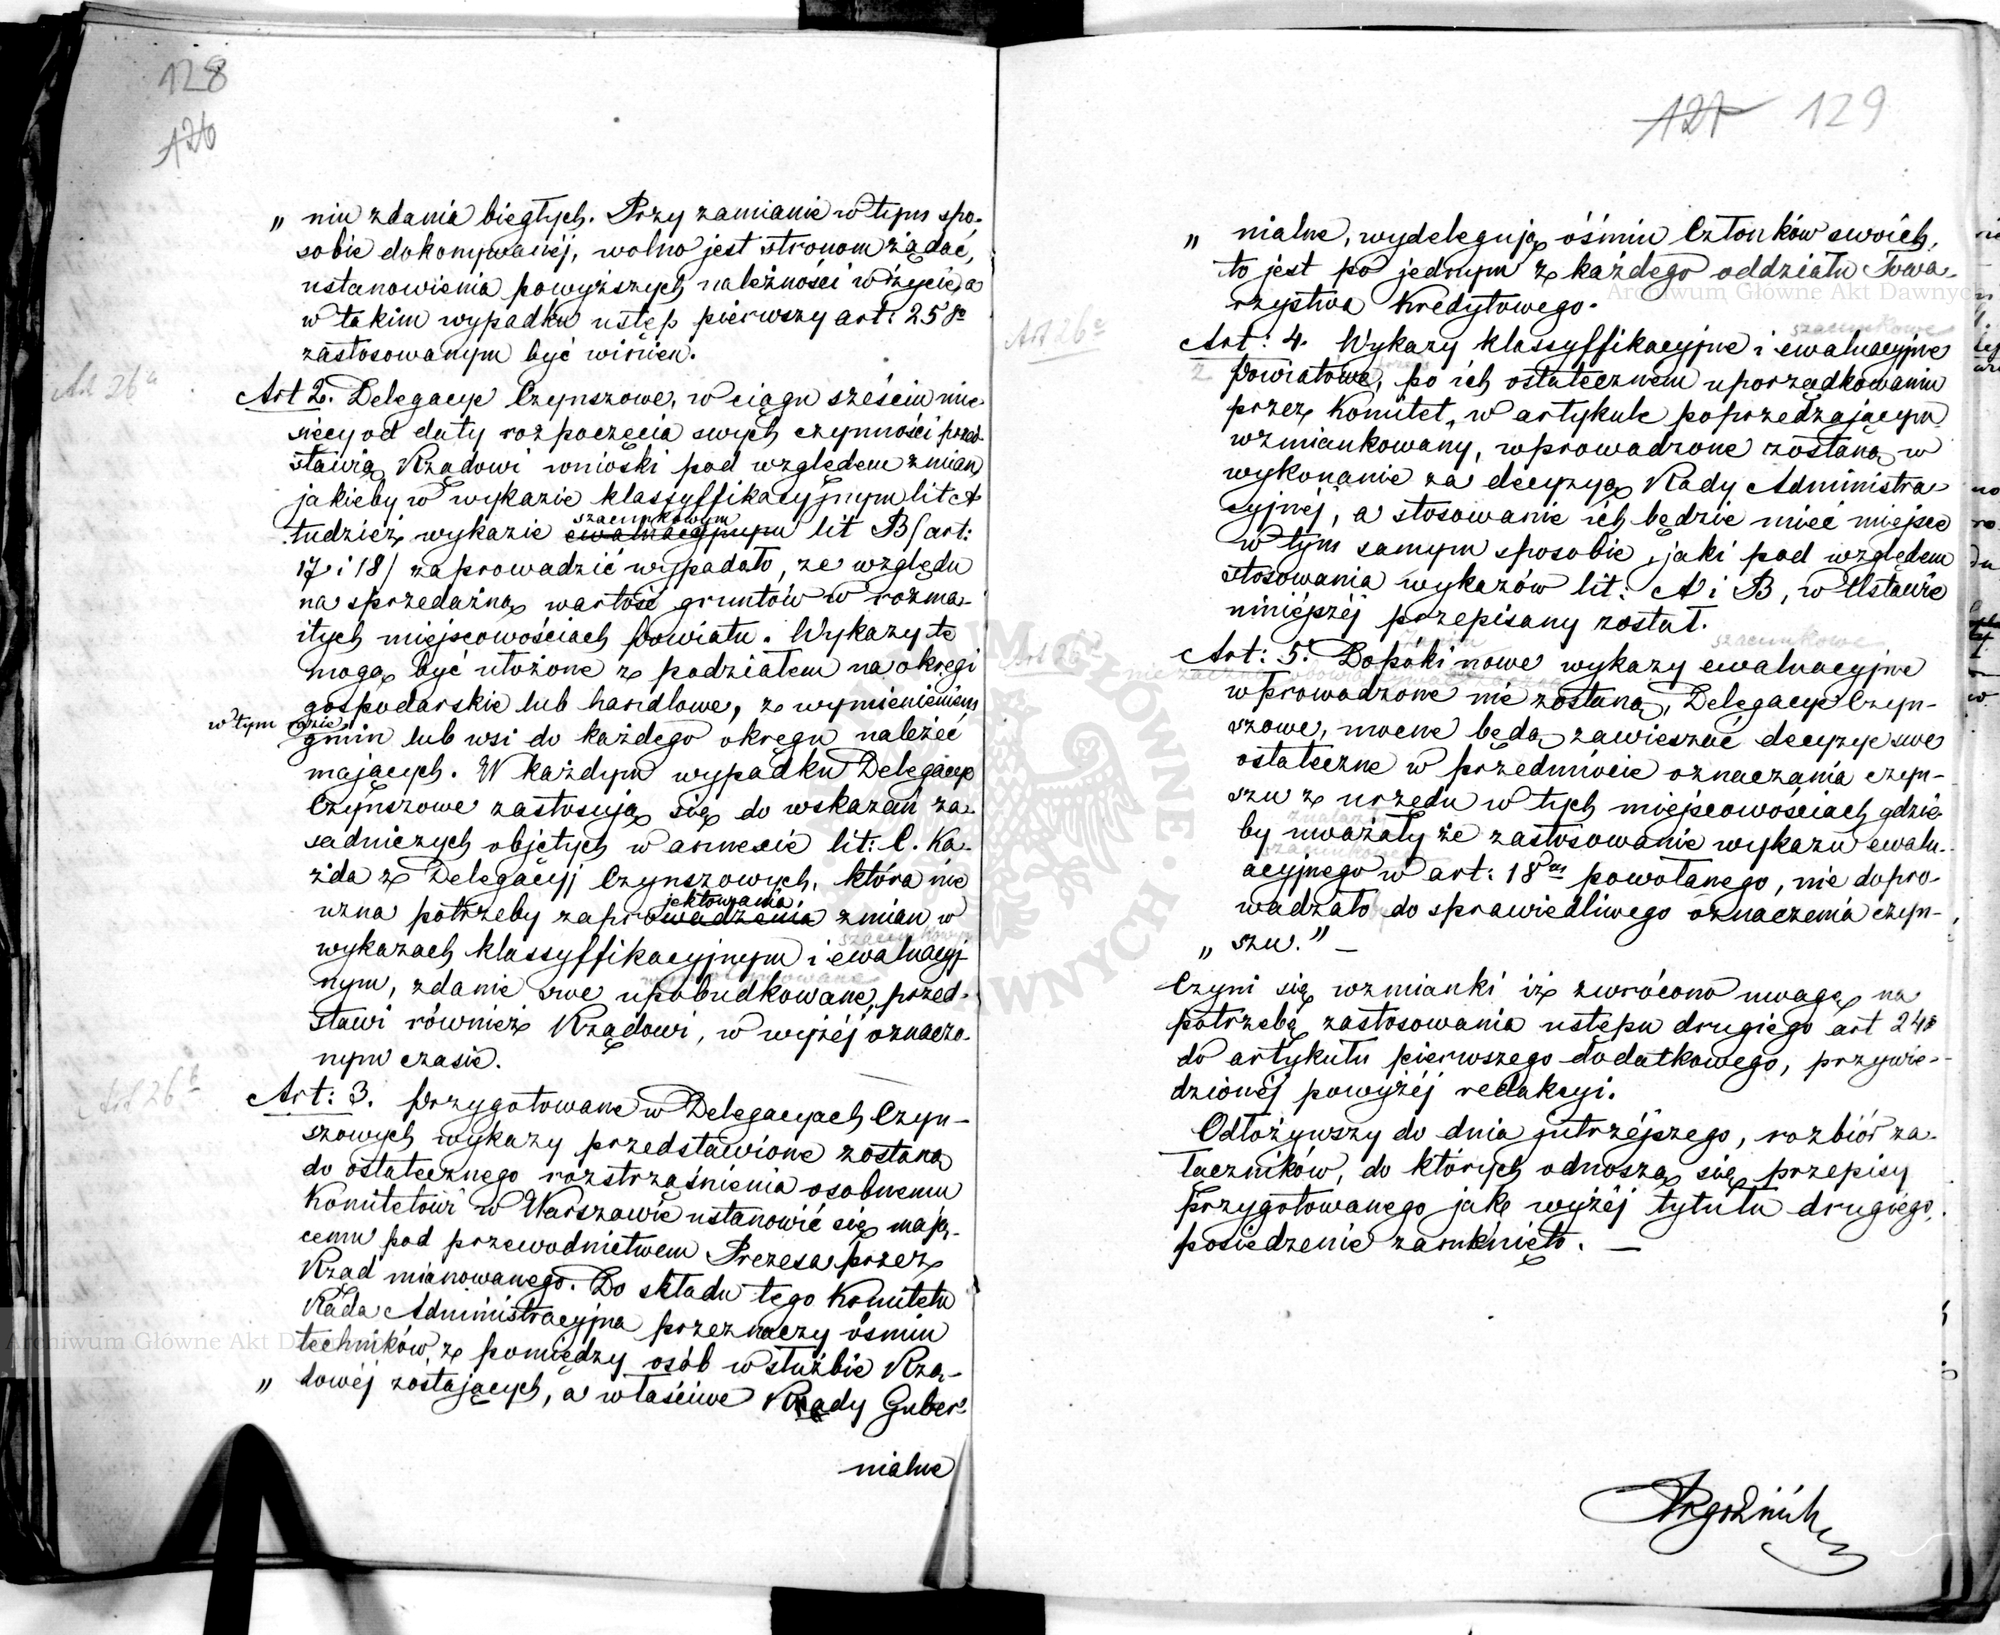 128
126
„ niu zdania biegłych. Przy zamianie w tym spo-
sobie dokonywanéj, wolno jest stronom żądać,
ustanowienia powyższych należności w życie, a
w takim wypadku ustęp pierwszy art: 25go
zastosowanym być winien.
Art 26a
Art 2. Delegacye Czynszowe, w ciągu sześciu mie-
sięcy od daty rozpoczęcia swych czynności przed-
stawią Rządowi wnioski pod względem zmian,
jakieby w wykazie klassyffikacyjnym lit A
szacunkowym
tudzież wykazie ewaluacyjnym lit B (art:
17 i 18) zaprowadzić wypadało, ze względu
na sprzedażną wartość gruntów w rozma-
itych miejscowościach Powiatu. Wykazy te
mogą być ułożone z podziałem na okręgi
gospodarskie lub handlowe, z wymienieniem
w tym razie
gmin lub wsi do każdego okręgu należeć
mających. W każdym wypadku Delegacye
Czynszowe zastosują się do wskazań za-
sadniczych objętych w annexie lit: C. Ka-
żda z Delegacyj Czynszowych, która nie
jektowania
uzna potrzeby zaprowadzenia zmian w
szacunkowym
wykazach klassyffikacyjnym i ewaluacyj-
nym, zdanie swe upobudkowane, przed-
stawi również Rządowi, w wyżéj oznaczo-
nym czasie.
Art 26b
Art: 3. Przygotowane w Delegacyach Czyn-
szowych wykazy przedstawione zostaną
do ostatecznego roztrząśnienia osobnemu
Komitetowi w Warszawie ustanowić się mają-
cemu pod przewodnictwem Prezesa przez
Rząd mianowanego. Do składu tego Komitetu
Rada Administracyjna przeznaczy óśmiu
techników z pomiędzy osób w służbie Rzą-
„ dowéj zostających, a właściwe Rady Guber-
nialne
127 129
„ nialne, wydelegują óśmiu Członków swoich,
to jest po jednym z każdego oddziału Towa-
rzystwa Kredytowego.
Art 26c
szacunkowe
Art: 4. Wykazy klassyffikacyjne i ewaluacyjne
Powiatowe, po ich ostatecznem uporządkowaniu
przez Komitet, w artykule poprzedzającym
wzmiankowany, wprowadzone zostaną w
wykonanie za decyzyą Rady Administra-
cyjnéj, a stosowanie ich będzie mieć miejsce
w tym samym sposobie, jaki pod względem
stosowania wykazów lit: A i B, w Ustawie
niniéjszéj przepisany został.
szacunkowe
Art: 5. Dopóki nowe wykazy ewaluacyjne
wprowadzone nie zostaną, Delegacye Czyn-
szowe, mocne będą zawieszać decyzye swe
ostateczne w przedmiocie oznaczania czyn-
szu z urzędu w tych miejscowościach gdzie-
by uważały że zastosowanie wykazu ewalu-
acyjnego w art: 18ym powołanego, nie dopro-
wadzało do sprawiedliwego oznaczenia czyn-
„ szu." —
Czyni się wzmianki iż zwrócono uwagę na
potrzebę zastosowania ustępu drugiego art 24go
do artykułu pierwszego dodatkowego, przywie-
dzionéj powyżéj redakcyi.
Odłożywszy do dnia jutrzéjszego, rozbiór za-
łączników, do których odnoszą się przepisy
Przygotowanego jak wyżéj tytułu drugiego,
posiedzenie zamknięto. —
Archiwum Główne Akt Dawnych